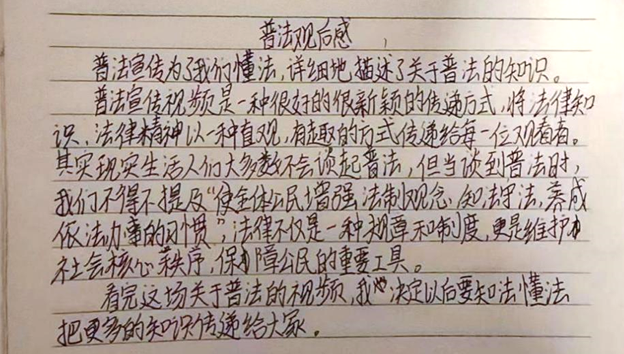 普法观后感
普法宣传为了我们懂法,详细地描述了关于普法的知识。
普法宣传视频是一种很好的很新颖的传递方式,将法律知
识,法律精神以一种直观,有趣取的方式传递给每一位观看者。
其实现实生活人们大多数不会谈起普法,但当谈到普法时,
我们不得不提及“使全体公民增强法制观念,知法守法,养成
依法办事的习惯”,法律不仅是一种规章和制度,更是维护
社会核心秩序,保障公民的重要工具。
看完这场关于普法的视频,我决定以后要知法懂法
把更多的知识传递给大家。